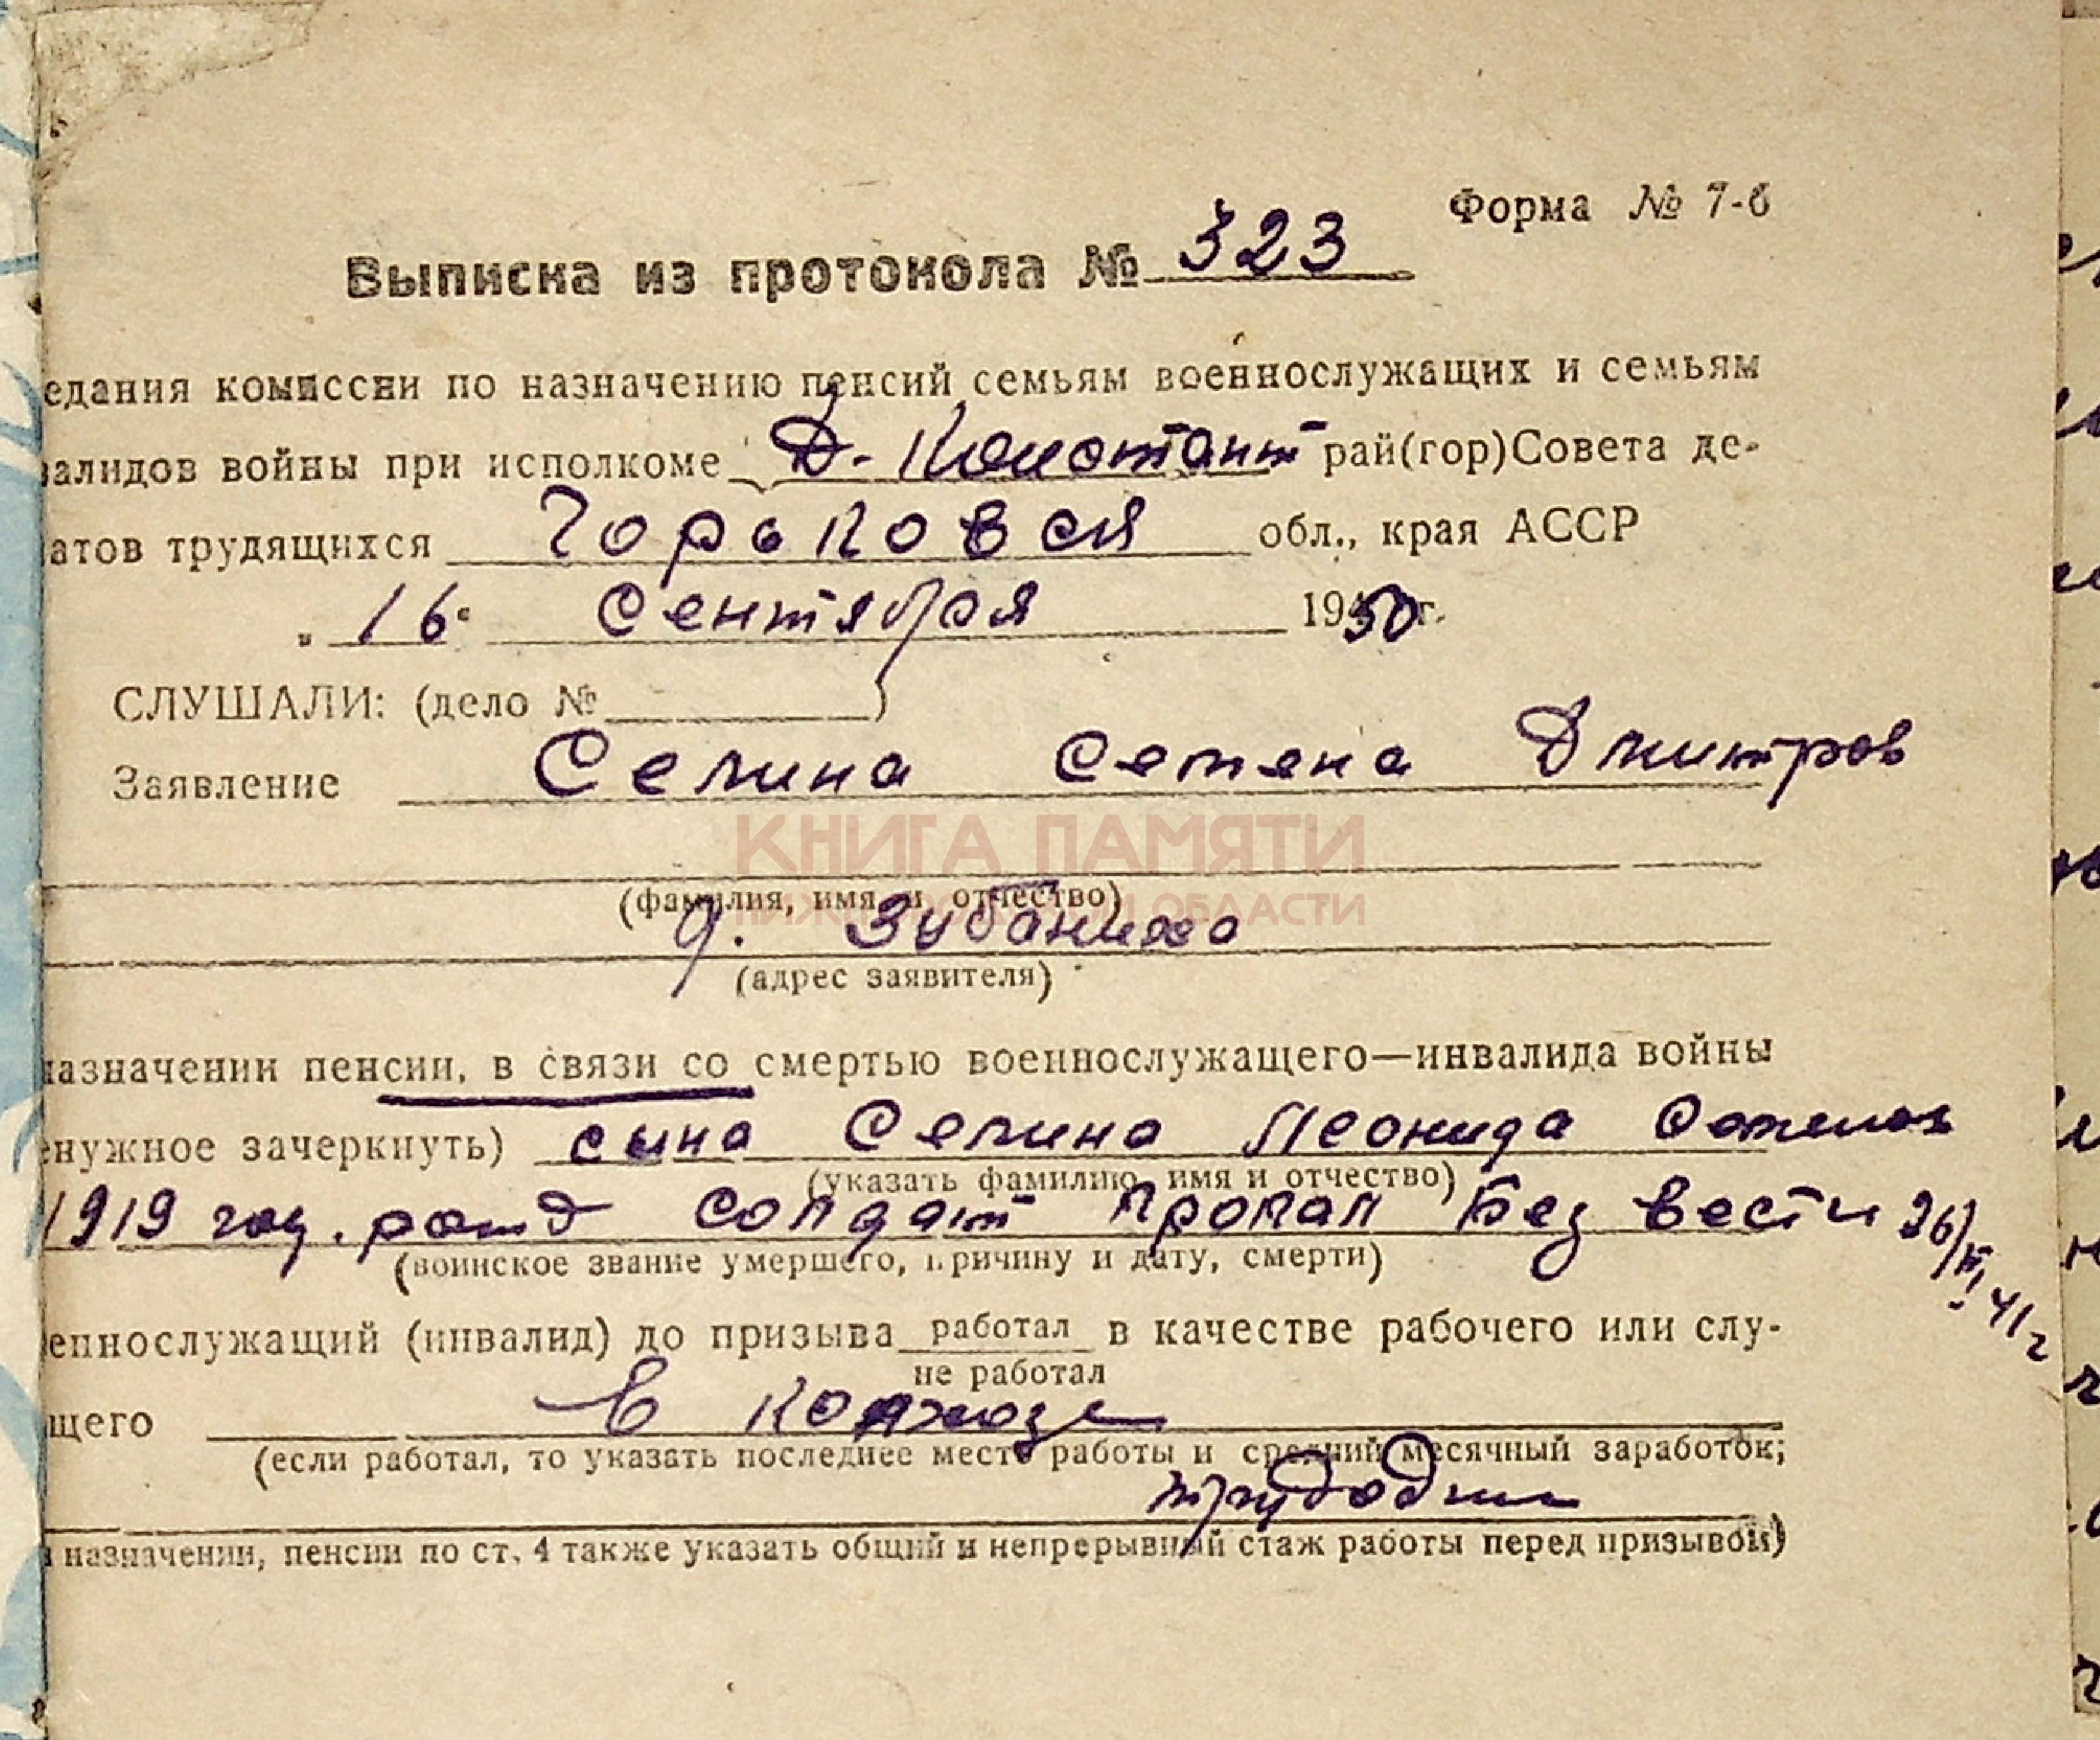 Форма № 7-б
Выписка из протокола № 323
едания комиссии по назначению пенсий семьям военнослужащих и семьям
валидов войны при исполкоме Д-Констант рай(гор)Совета де-
атов трудящихся Горьковся обл., края АССР
„ 16 " Сентября 1950 г.
СЛУШАЛИ: (дело № )
Заявление Селина Семена Дмитров
КНИГА ПАМЯТИ
(фамилия, имя и отчество)
НИЖЕГОРОДСКОЙ ОБЛАСТИ
д. Зубаниха
(адрес заявителя)
назначении пенсии, в связи со смертью военнослужащего—инвалида войны
енужное зачеркнуть) сына Селина Леонида Семенов
(указать фамилию, имя и отчество)
1919 год. рожд солдат пропал без вести 26/ 41 г
(воинское звание умершего, причину и дату, смерти)
еннослужащий (инвалид) до призыва работал в качестве рабочего или слу-
не работал
щего в колхозе
(если работал, то указать последнее место работы и средний месячный заработок;
трудодни
и назначении, пенсии по ст. 4 также указать общий и непрерывный стаж работы перед призывом)